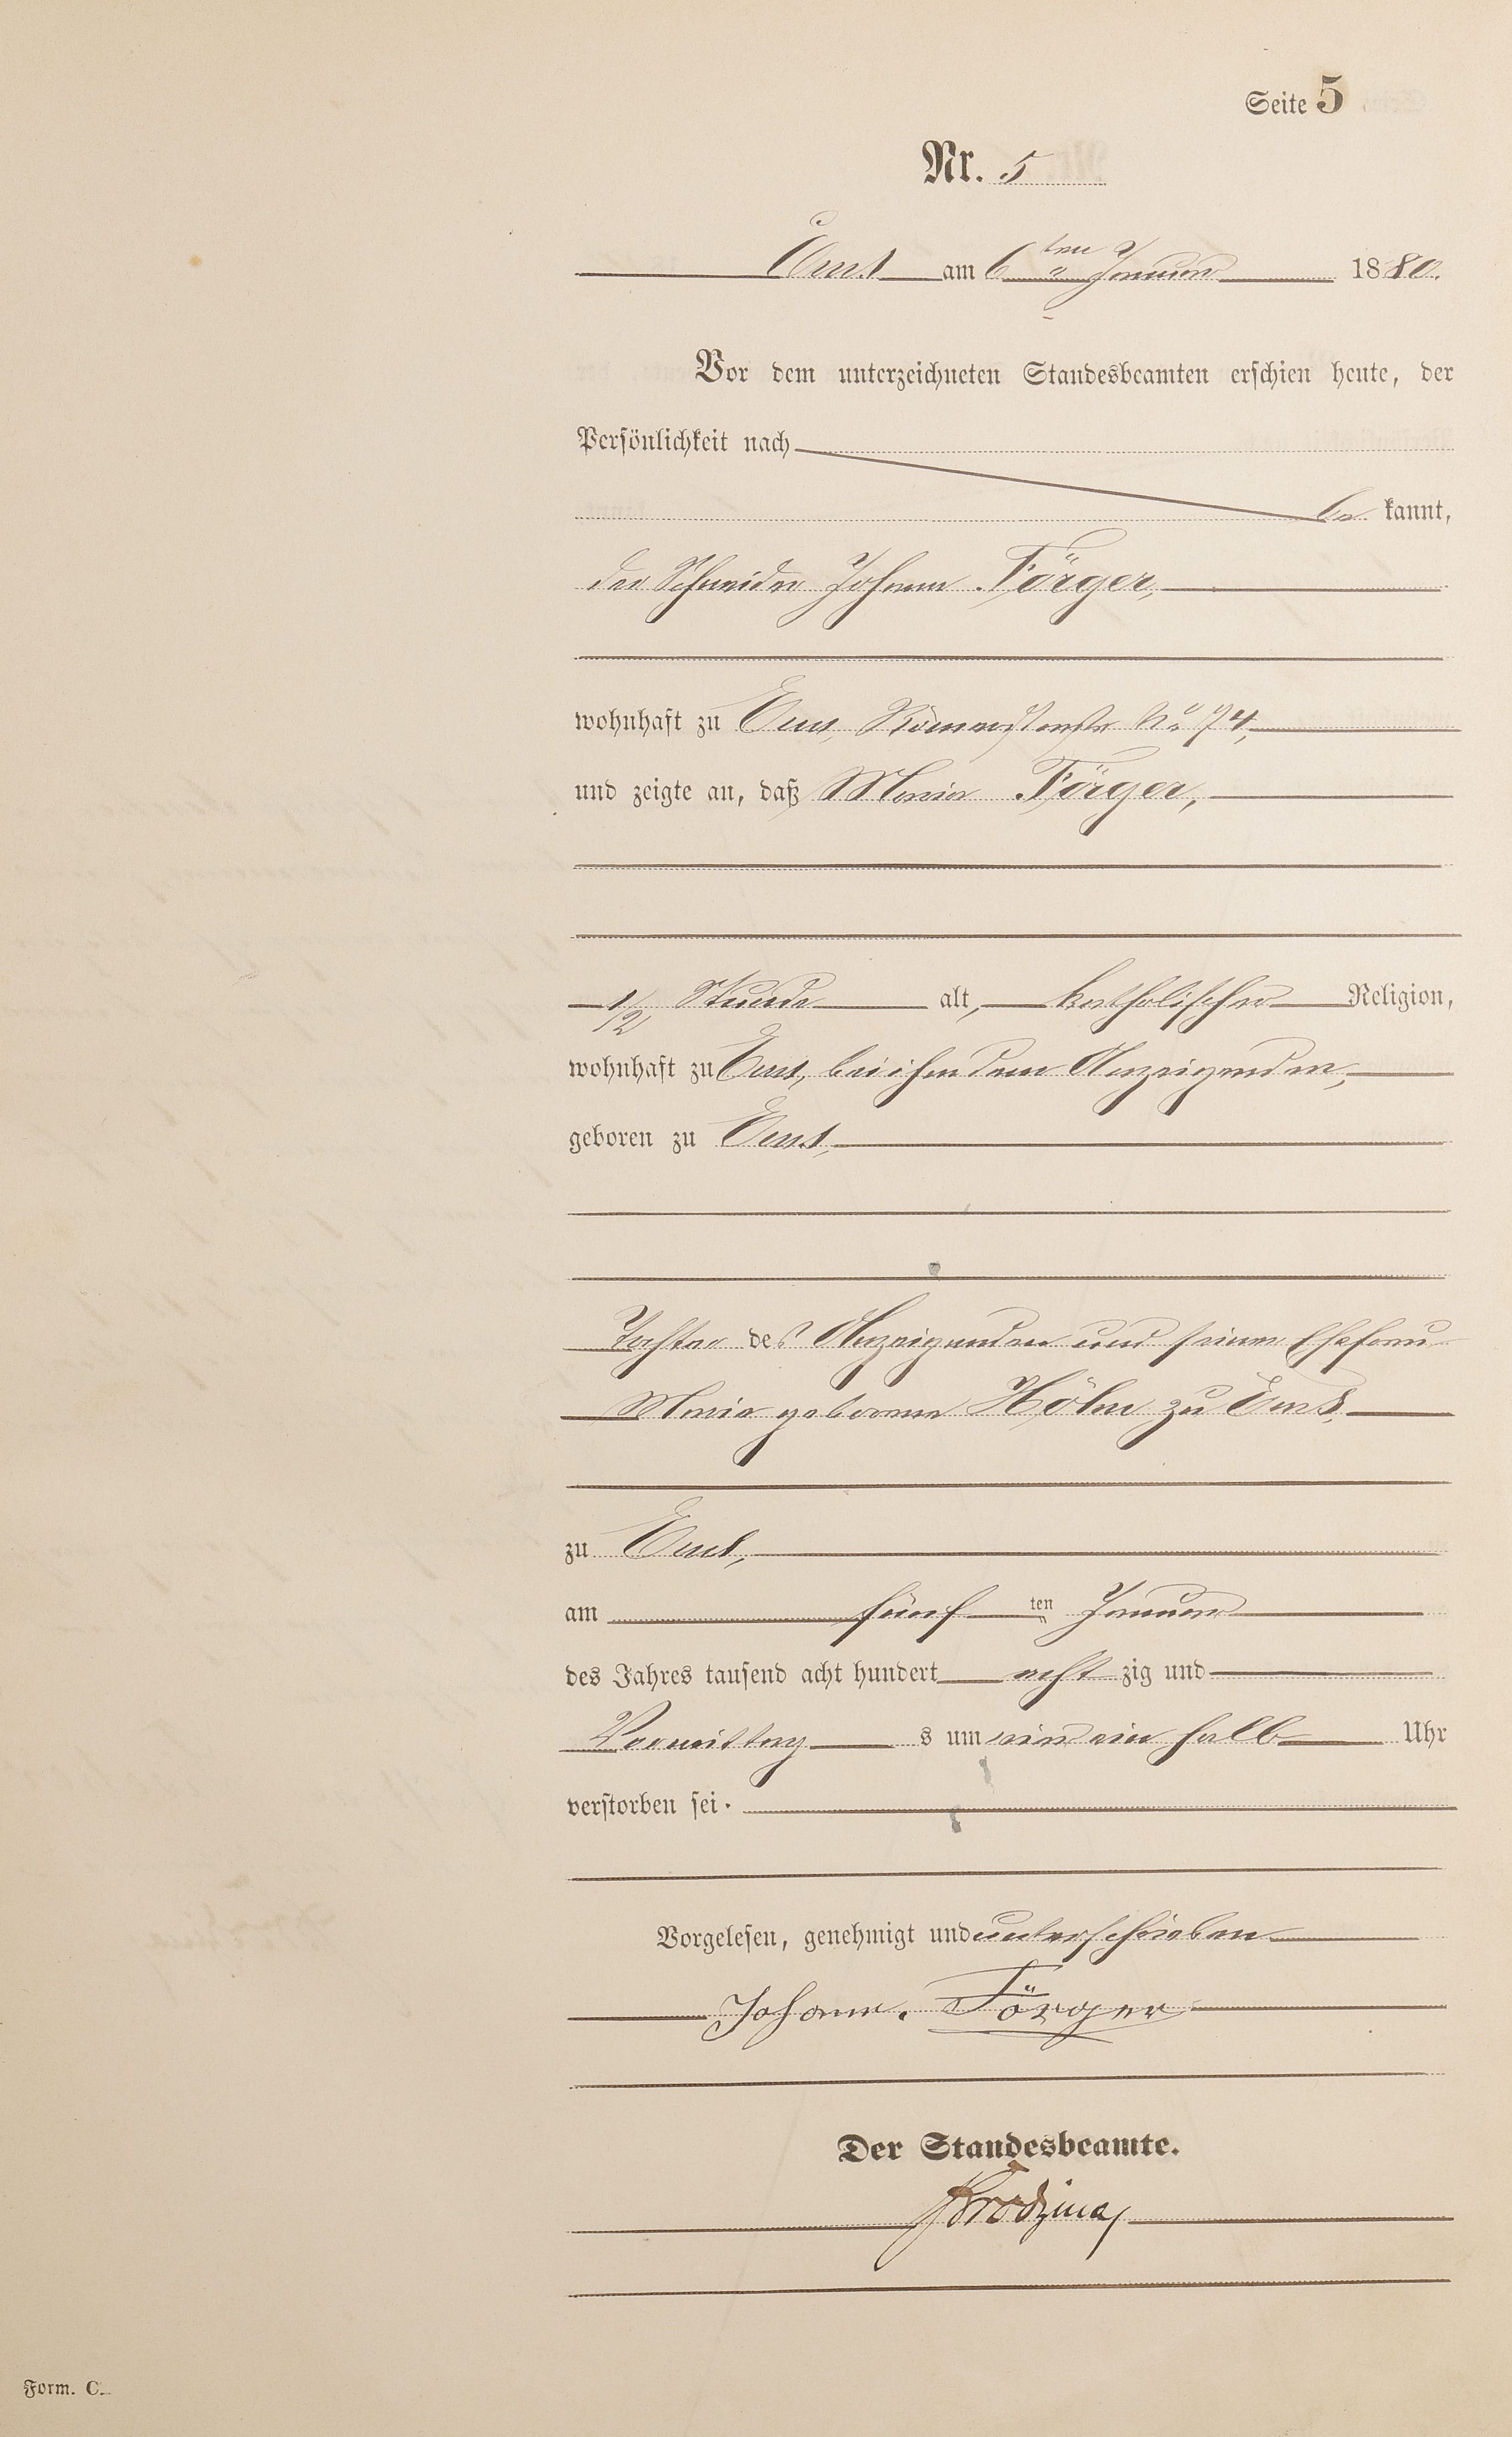 Seite 5
Nr. 5
Ems am 6ten Januar 1880.
Vor dem unterzeichneten Standesbeamten erschien heute, der
Persönlichkeit nach
be kannt,
der Schneider Johann Förger,
wohnhaft zu Ems, Römerstraße No 74,
und zeigte an, daß Maria Förger,
1/2 Stunde alt, katholischer Religion,
wohnhaft zu Ems, bei ihm dem Anzeigenden,
geboren zu Ems,
Tochter des Anzeigenden und seiner Ehefrau
Maria geborene Höhn zu Ems,
zu Ems,
am fünf ten Januar
des Jahres tausend acht hundert acht zig und
Vormittag s um ein ein halb Uhr
verstorben sei.
Vorgelesen, genehmigt und unterschrieben
Johann. Förger
Der Standesbeamte.
Form. C.